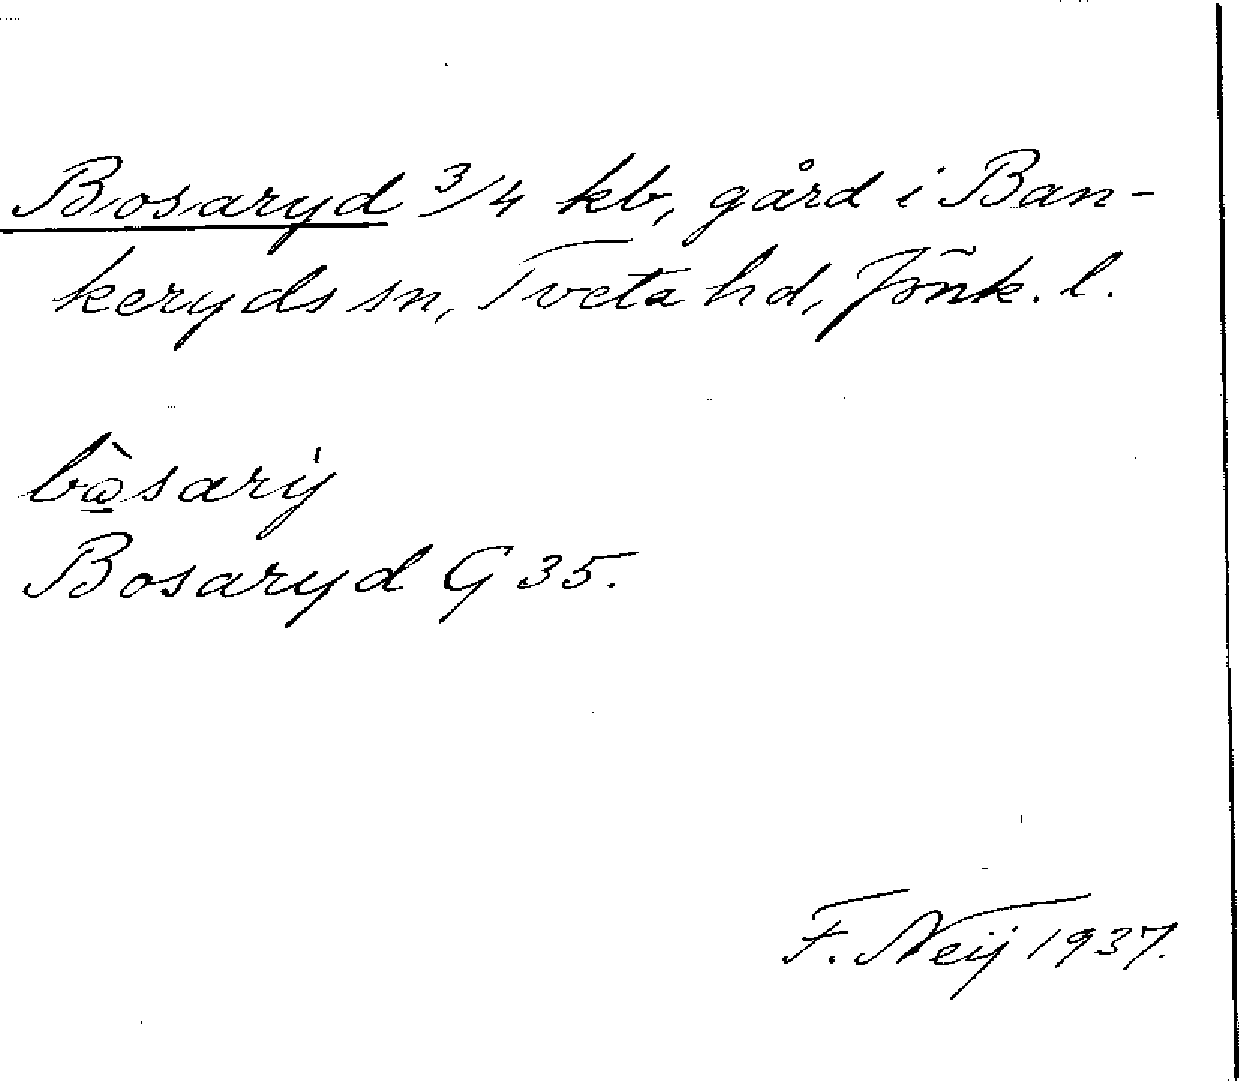 Bosaryd 3/4 kb, gård i Ban-
keryds sn, Tveta hd, Jönk. l.
bòsarý
Bosaryd G 35.
F. Neij 1937.